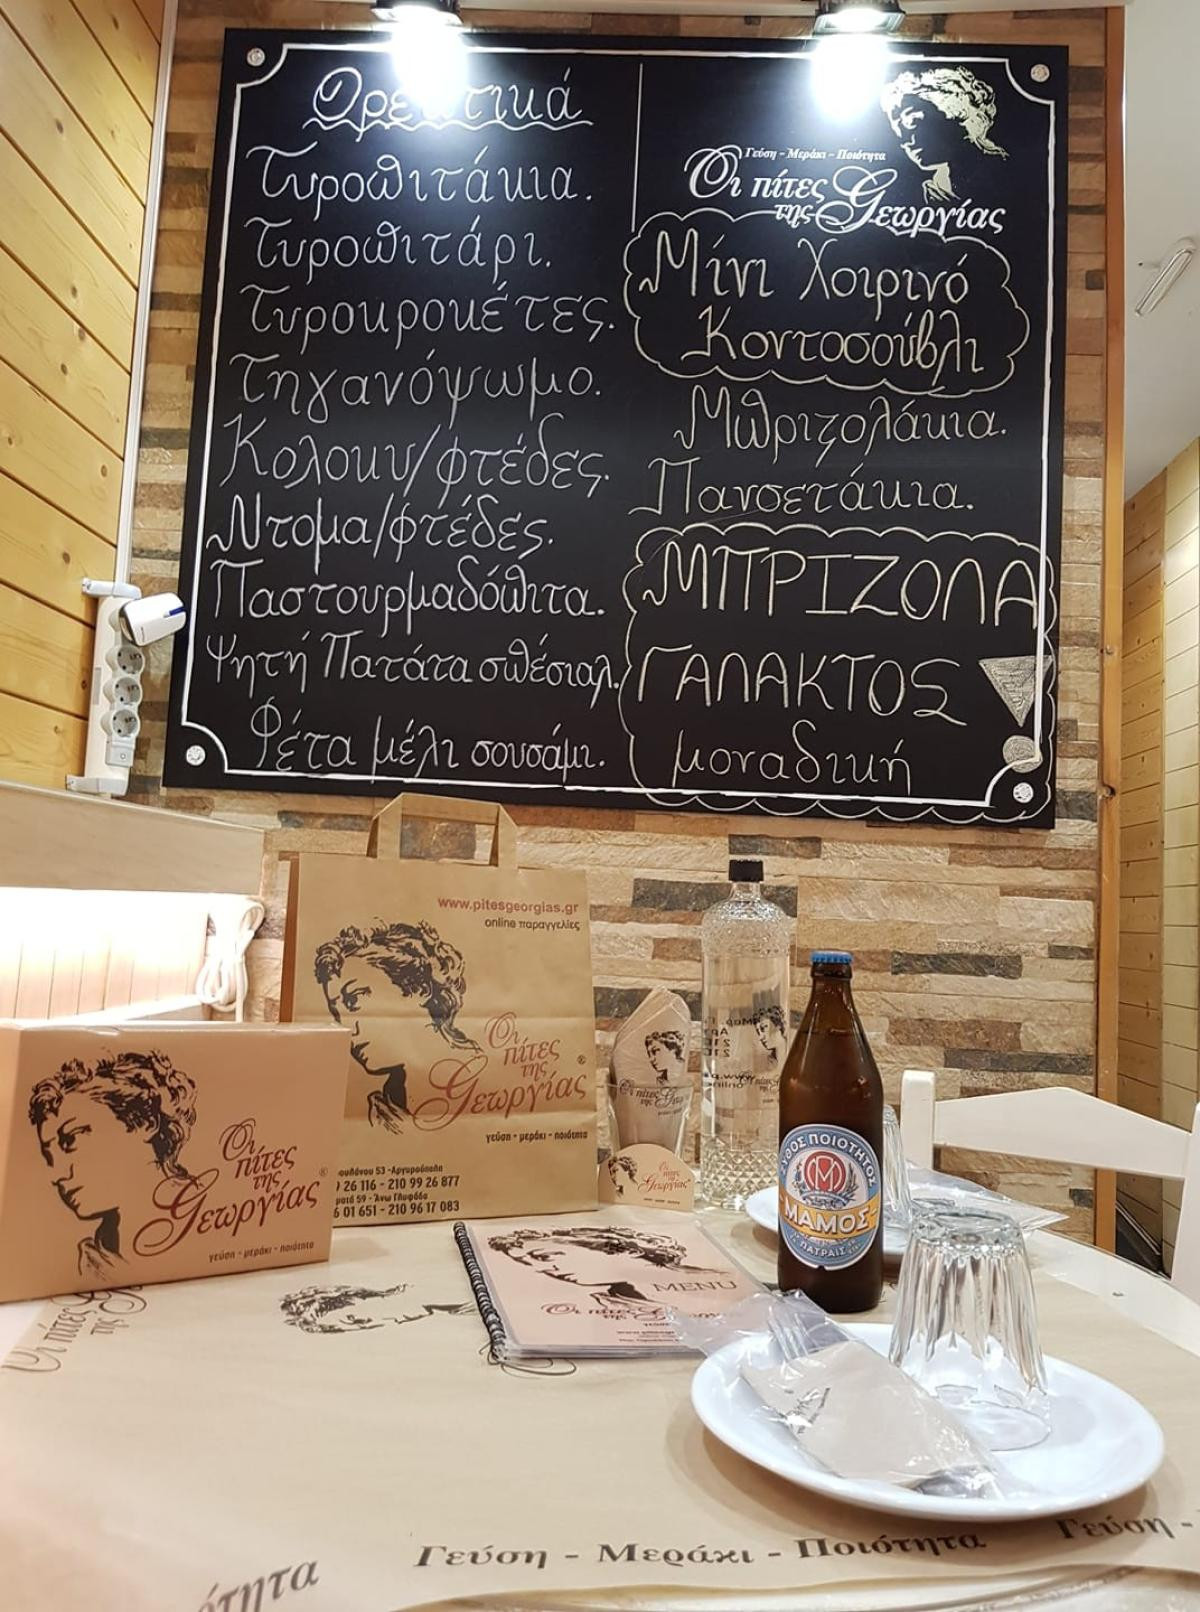 Ορεκτικά
Τυροπιτάκια.
Τυροπιτάρι.
Τυροκροκέτες.
Τηγανόψωμο.
Κολοκυ/φτέδες.
Ντομα/φτέδες.
Παστουρμαδόπιτα.
Ψητή Πατάτα σπέσιαλ.
Φέτα μέλι σουσάμι.
Γεύση - Μεράκι - Ποιότητα
Οι πίτες
της Γεωργίας
Μίνι Χοιρινό
Κοντοσούβλι
Μπριζολάκια.
Πανσετάκια.
ΜΠΡΙΖΟΛΑ
ΓΑΛΑΚΤΟΣ
μοναδική
www.pitesgeorgias.gr
online παραγγελίες
Οι
πίτες
της
Γεωργίας ®
γεύση - μεράκι - ποιότητα
53 - Αργυρούπολη
26 116 - 210 99 26 877
59 - Άνω Γλυφάδα
01 651 - 210 96 17 083
Οι
πίτες
της
Γεωργίας ®
γεύση - μεράκι - ποιότητα
Οι πίτες
της
Οι
πίτες
της
Γεωργίας
ΖΥΘΟΣ ΠΟΙΟΤΗΤΟΣ
ΜΑΜΟΣ
ΠΑΤΡΑΙΣ
MENU
Οι πίτες
της
Γεύση - Μεράκι - Ποιότητα
Γεύση -